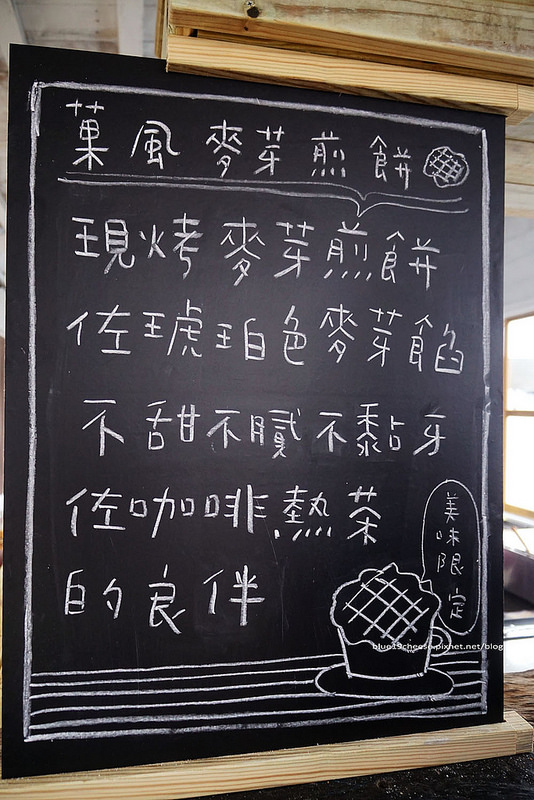 菓風麥芽煎餅
現烤麥芽煎餅
佐琥珀色麥芽餡
不甜不膩不黏牙
佐咖啡熱茶
的良伴
美味限定
blue19cheese.pixnet.net/blog